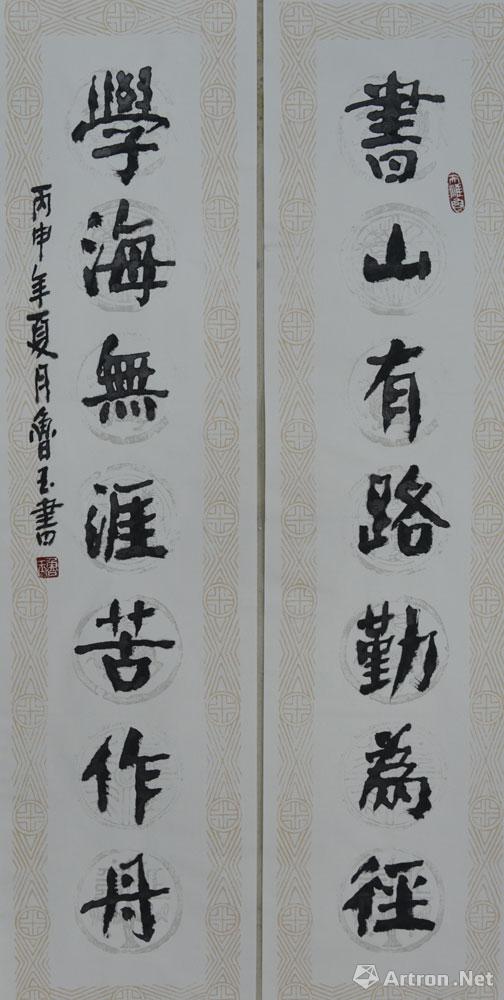 書山有路勤為徑
學海無涯苦作舟
丙申年夏月魯玉書
雅昌艺术网
Artron.Net